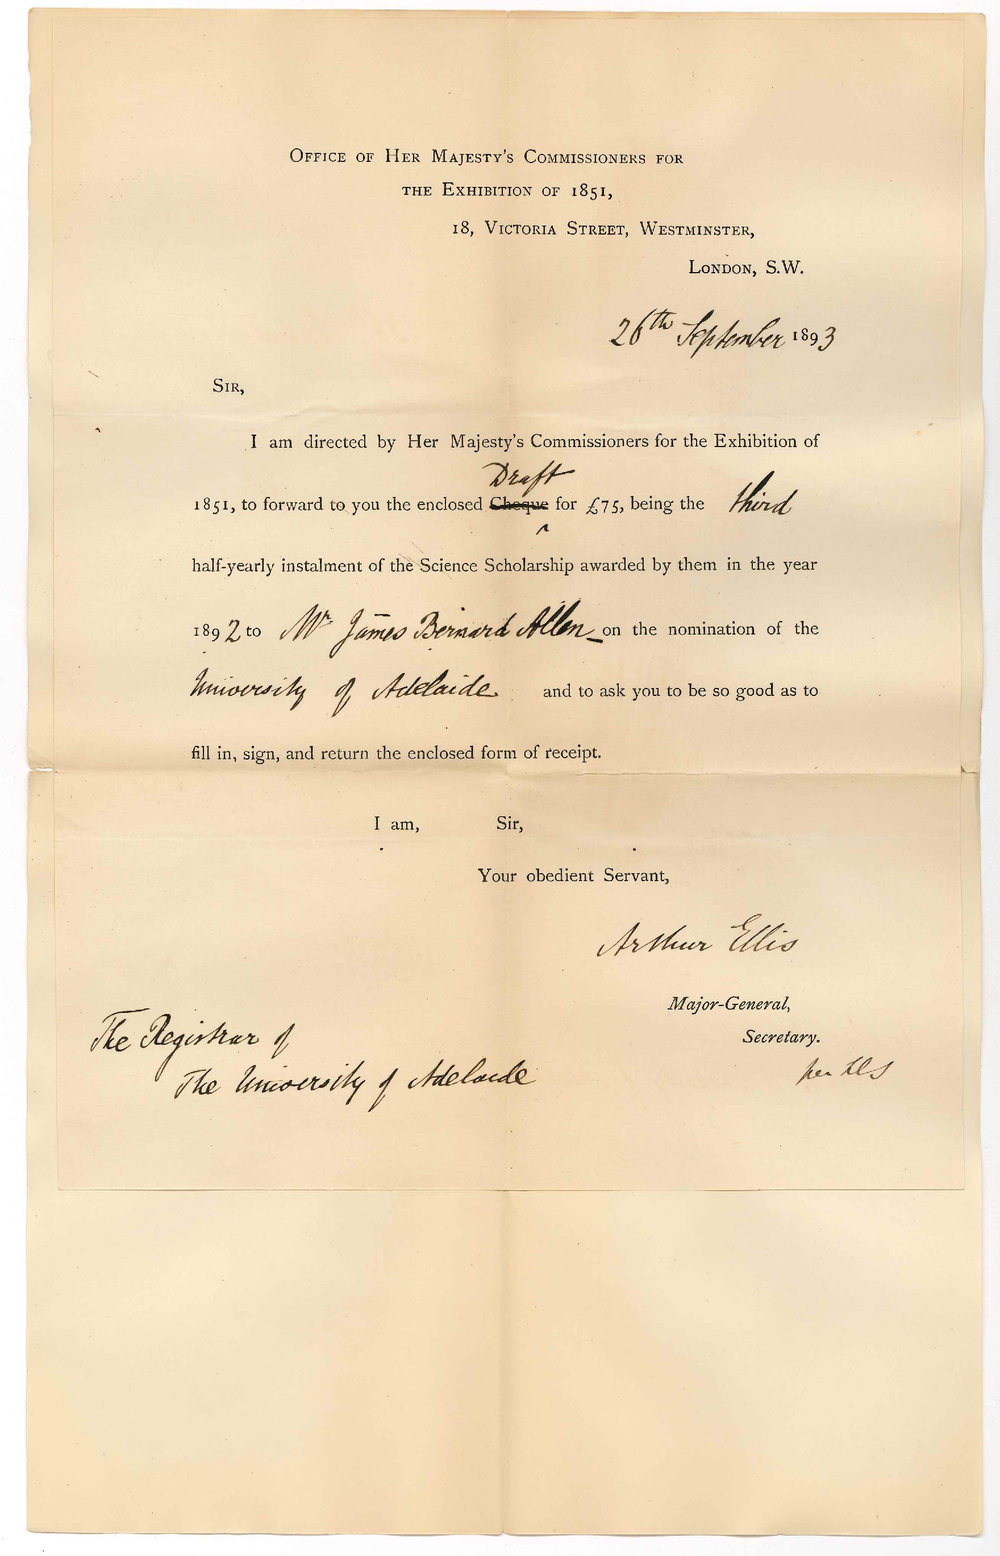 OFFICE OF HER MAJESTY'S COMMISSIONERS FOR
THE EXHIBITION OF 1851,
18, VICTORIA STREET, WESTMINSTER,
LONDON, S.W.
26th September 1893
SIR,
I am directed by Her Majesty's Commissioners for the Exhibition of
Draft
1851, to forward to you the enclosed Cheque for £75, being the third
half-yearly instalment of the Science Scholarship awarded by them in the year
1892 to Mr James Bernard Allen on the nomination of the
University of Adelaide and to ask you to be so good as to
fill in, sign, and return the enclosed form of receipt.
I am, Sir,
Your obedient Servant,
Arthur Ellis
Major-General,
Secretary.
per
The Registrar of
The University of Adelaide